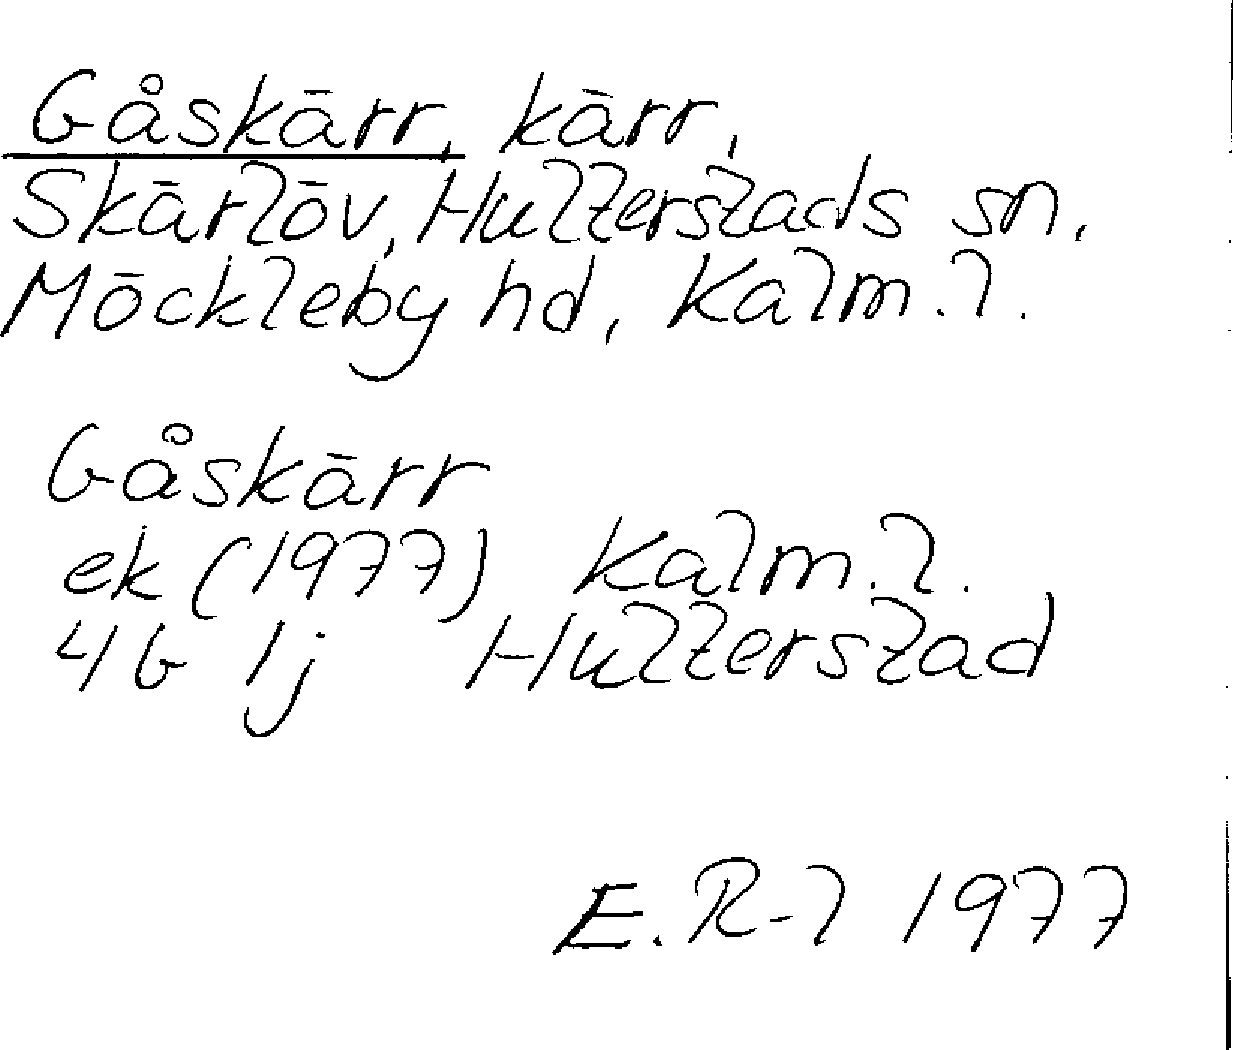 Gåskärr, kärr,
Skärlöv, Hulterstads sn,
Möckleby hd, Kalm. l.
Gåskärr
ek (1977) Kalm. l.
4G 1j Hulterstad
E. R-l 1977